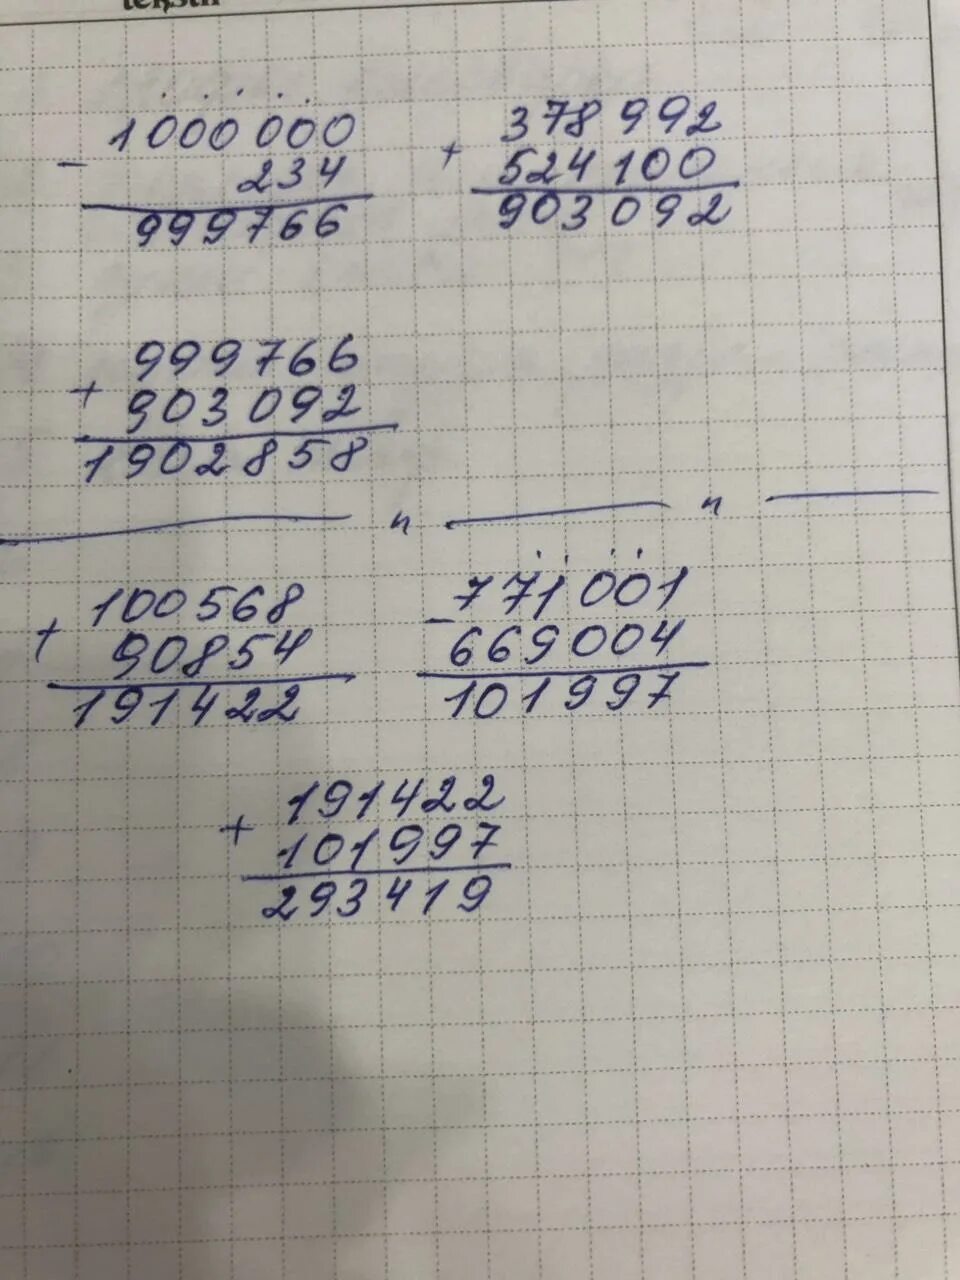 tekstil
1000 000
- 234
999766
378 992
+ 524 100
903 092
999766
+ 903 092
1902858
п п
100568
+ 90854
191422
771001
- 669004
101997
191422
+ 101997
293419